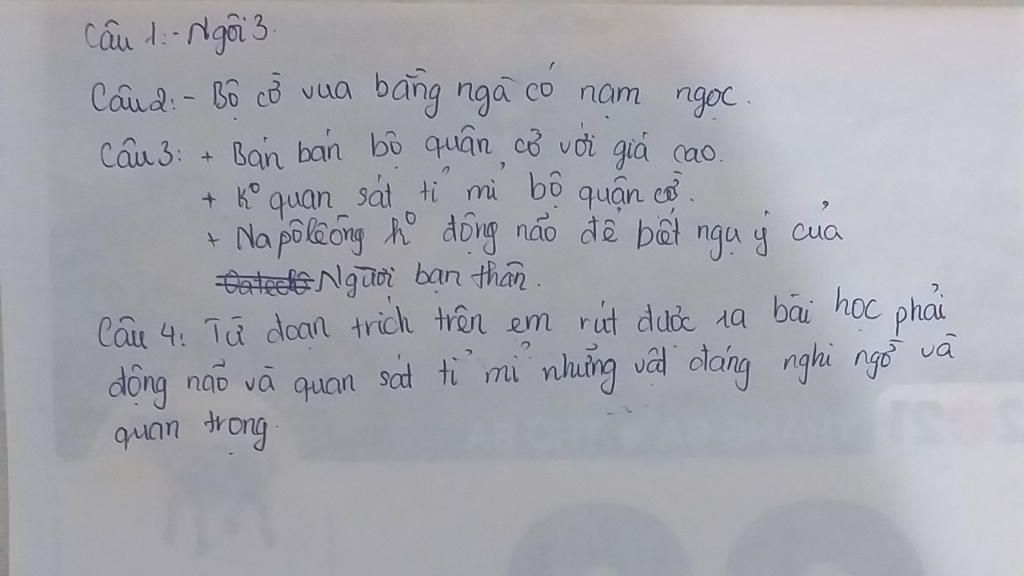 Câu 1: - Ngôi 3.
Câu 2: - Bộ cờ vua bằng ngà có nạm ngọc.
Câu 3: + Bán bán bộ quân cờ với giá cao.
+ K° quan sát tỉ mỉ bộ quận cờ.
+ Napôlêông k° động não để biết ngụ ý của
Người bạn thân.
Câu 4: Từ đoạn trích trên em rút được ra bài học phải
động não và quan sát tỉ mỉ những vật đáng nghi ngờ và
quan trọng.